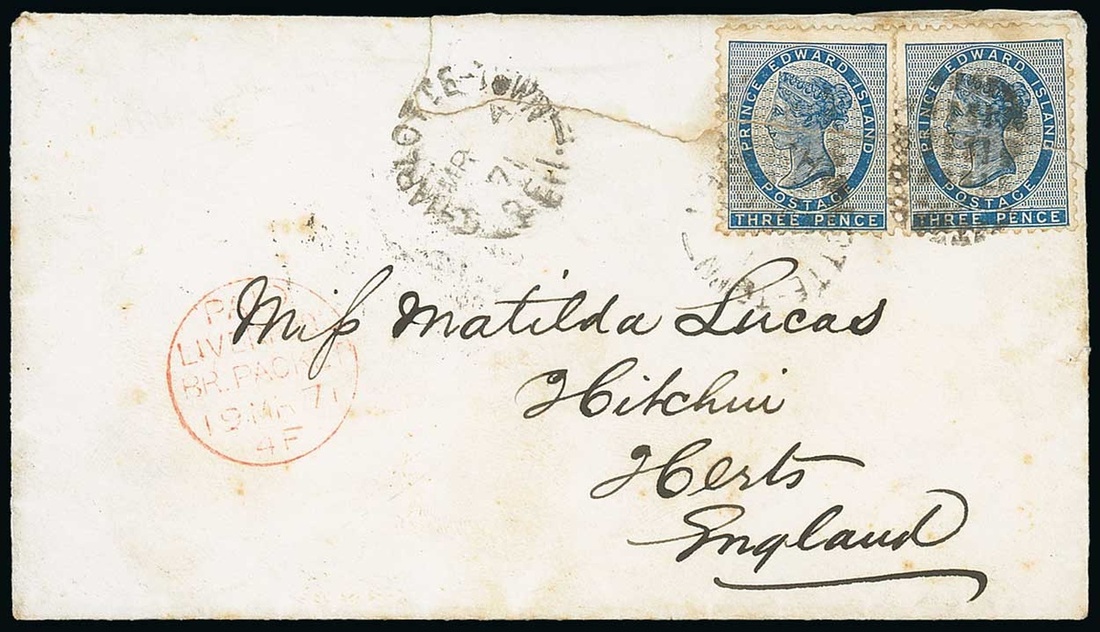 PRINCE EDWARD ISLAND
POSTAGE
THREE PENCE
PRINCE EDWARD ISLAND
POSTAGE
THREE PENCE
CHARLOTTE-TOWN
MR
71
P.E.I.
PAID
LIVERPOOL
BR. PACKET
19 MR 71
4F
Miſs Matilda Lucas
Hitchin
Herts
England